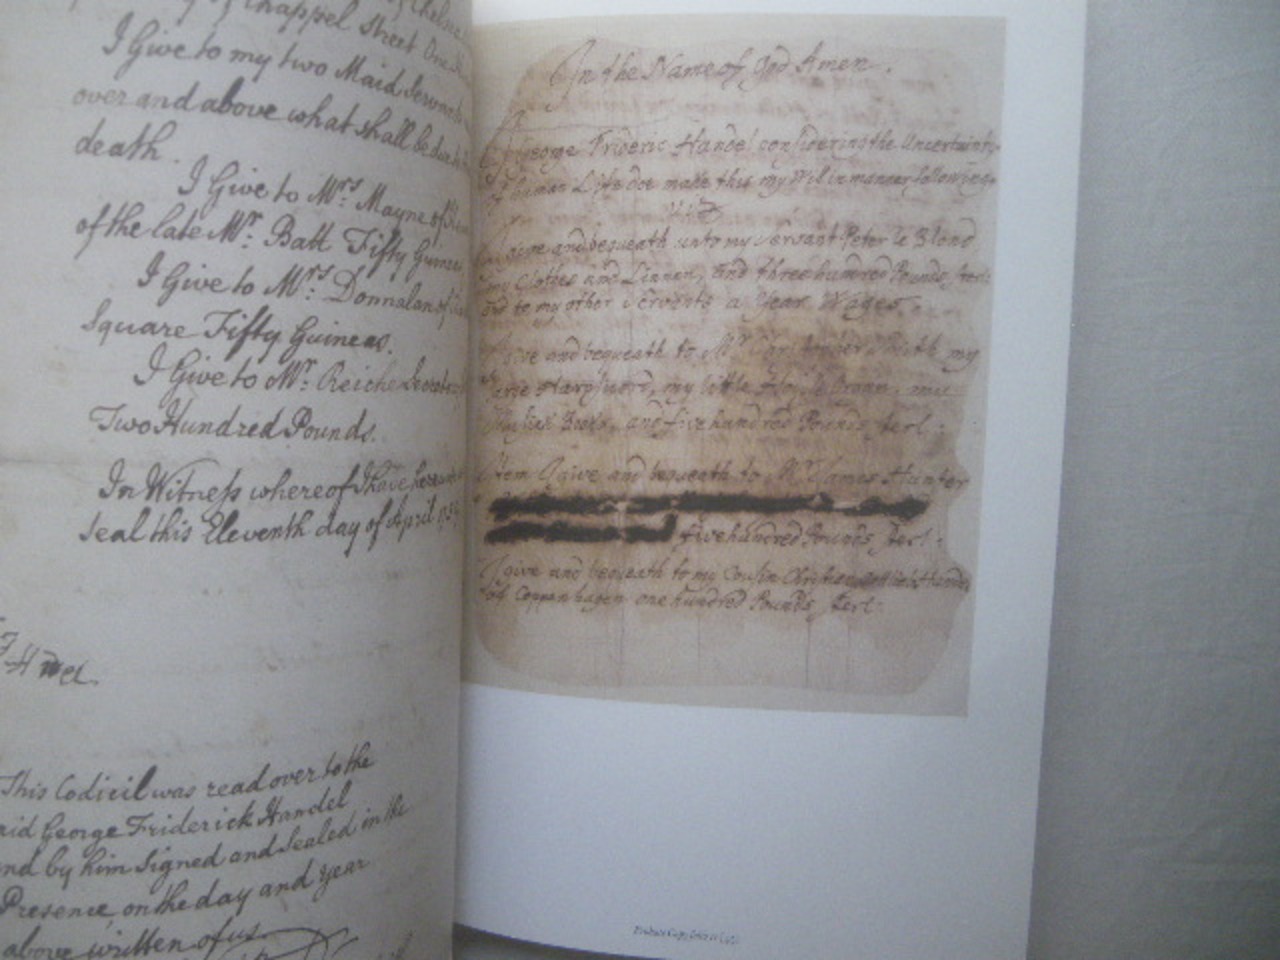 of Chappel Street One
I Give to my two Maid Servants
over and above what shall be due
death.
I Give to Mrs. Mayne of
of the late Mr. Batt Fifty Guineas
I Give to Mrs. Donnalan of
Square Fifty Guineas.
I Give to Mr. Reiche
Two Hundred Pounds.
In Witness whereof I have hereunto
Seal this Eleventh day of April
This Codicil was read over to the
said George Friderick Handel
and by him Signed and Sealed in the
Presence, on the day and year
above written of us
In the Name of God Amen.
I George Frideric Handel considering the Uncertainty
of human Life doe make this my Will in manner following
viz
I give and bequeath unto my servant Peter le Blond
my Clothes and Linnen, and three hundred Pounds sterl:
and to my other servants a year Wages.
I give and bequeath to Mr Christopher Smith my
large Harpsicord, my little House Organ, my
Musick Books, and five hundred Pounds sterl:
Item I give and bequeath to Mr James Hunter
five hundred Pounds sterl:
I give and bequeath to my Cousin Christian Gottlieb Handel
of Coppenhagen one hundred Pounds sterl: